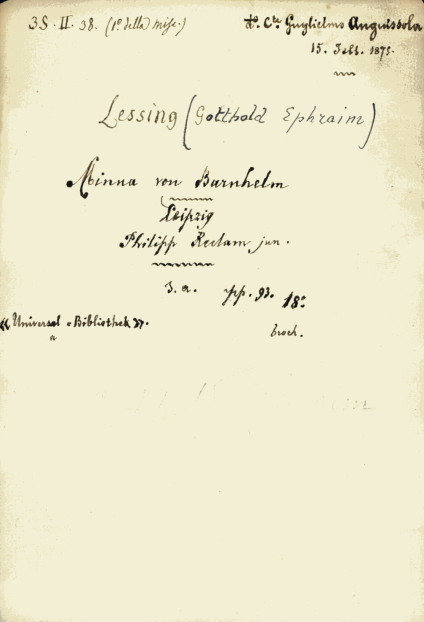 3S. II. 38. (1º della misc.)
Cte Guglielmo Anguissola
15. Febb. 1875.
Lessing (Gotthold Ephraim)
Minna von Barnhelm
Leipzig
Philipp Reclam jun.
s. a. pp. 93. 18º
« Universal-Bibliothek ».
broch.